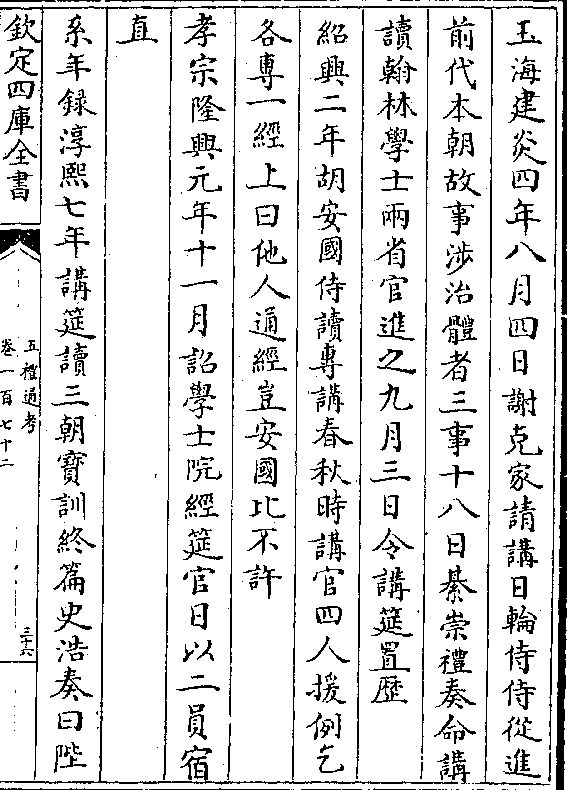 玉海建炎四年八月四日謝克家請講日輪侍侍從進
前代本朝故事涉治體者三事十八日綦崇禮奏命講
讀翰林學士兩省官進之九月三日令講筵置歴
紹興二年胡安國侍讀專講春秋時講官四人援例乞
各專一經上曰他人通經豈安國比不許
孝宗隆興元年十一月詔學士院經筵官日以二員宿
直
系年録淳熙七年講筵讀三朝寶訓終篇史浩奏曰陛
欽定四庫全書
五禮通考
卷一百七十二
三十六